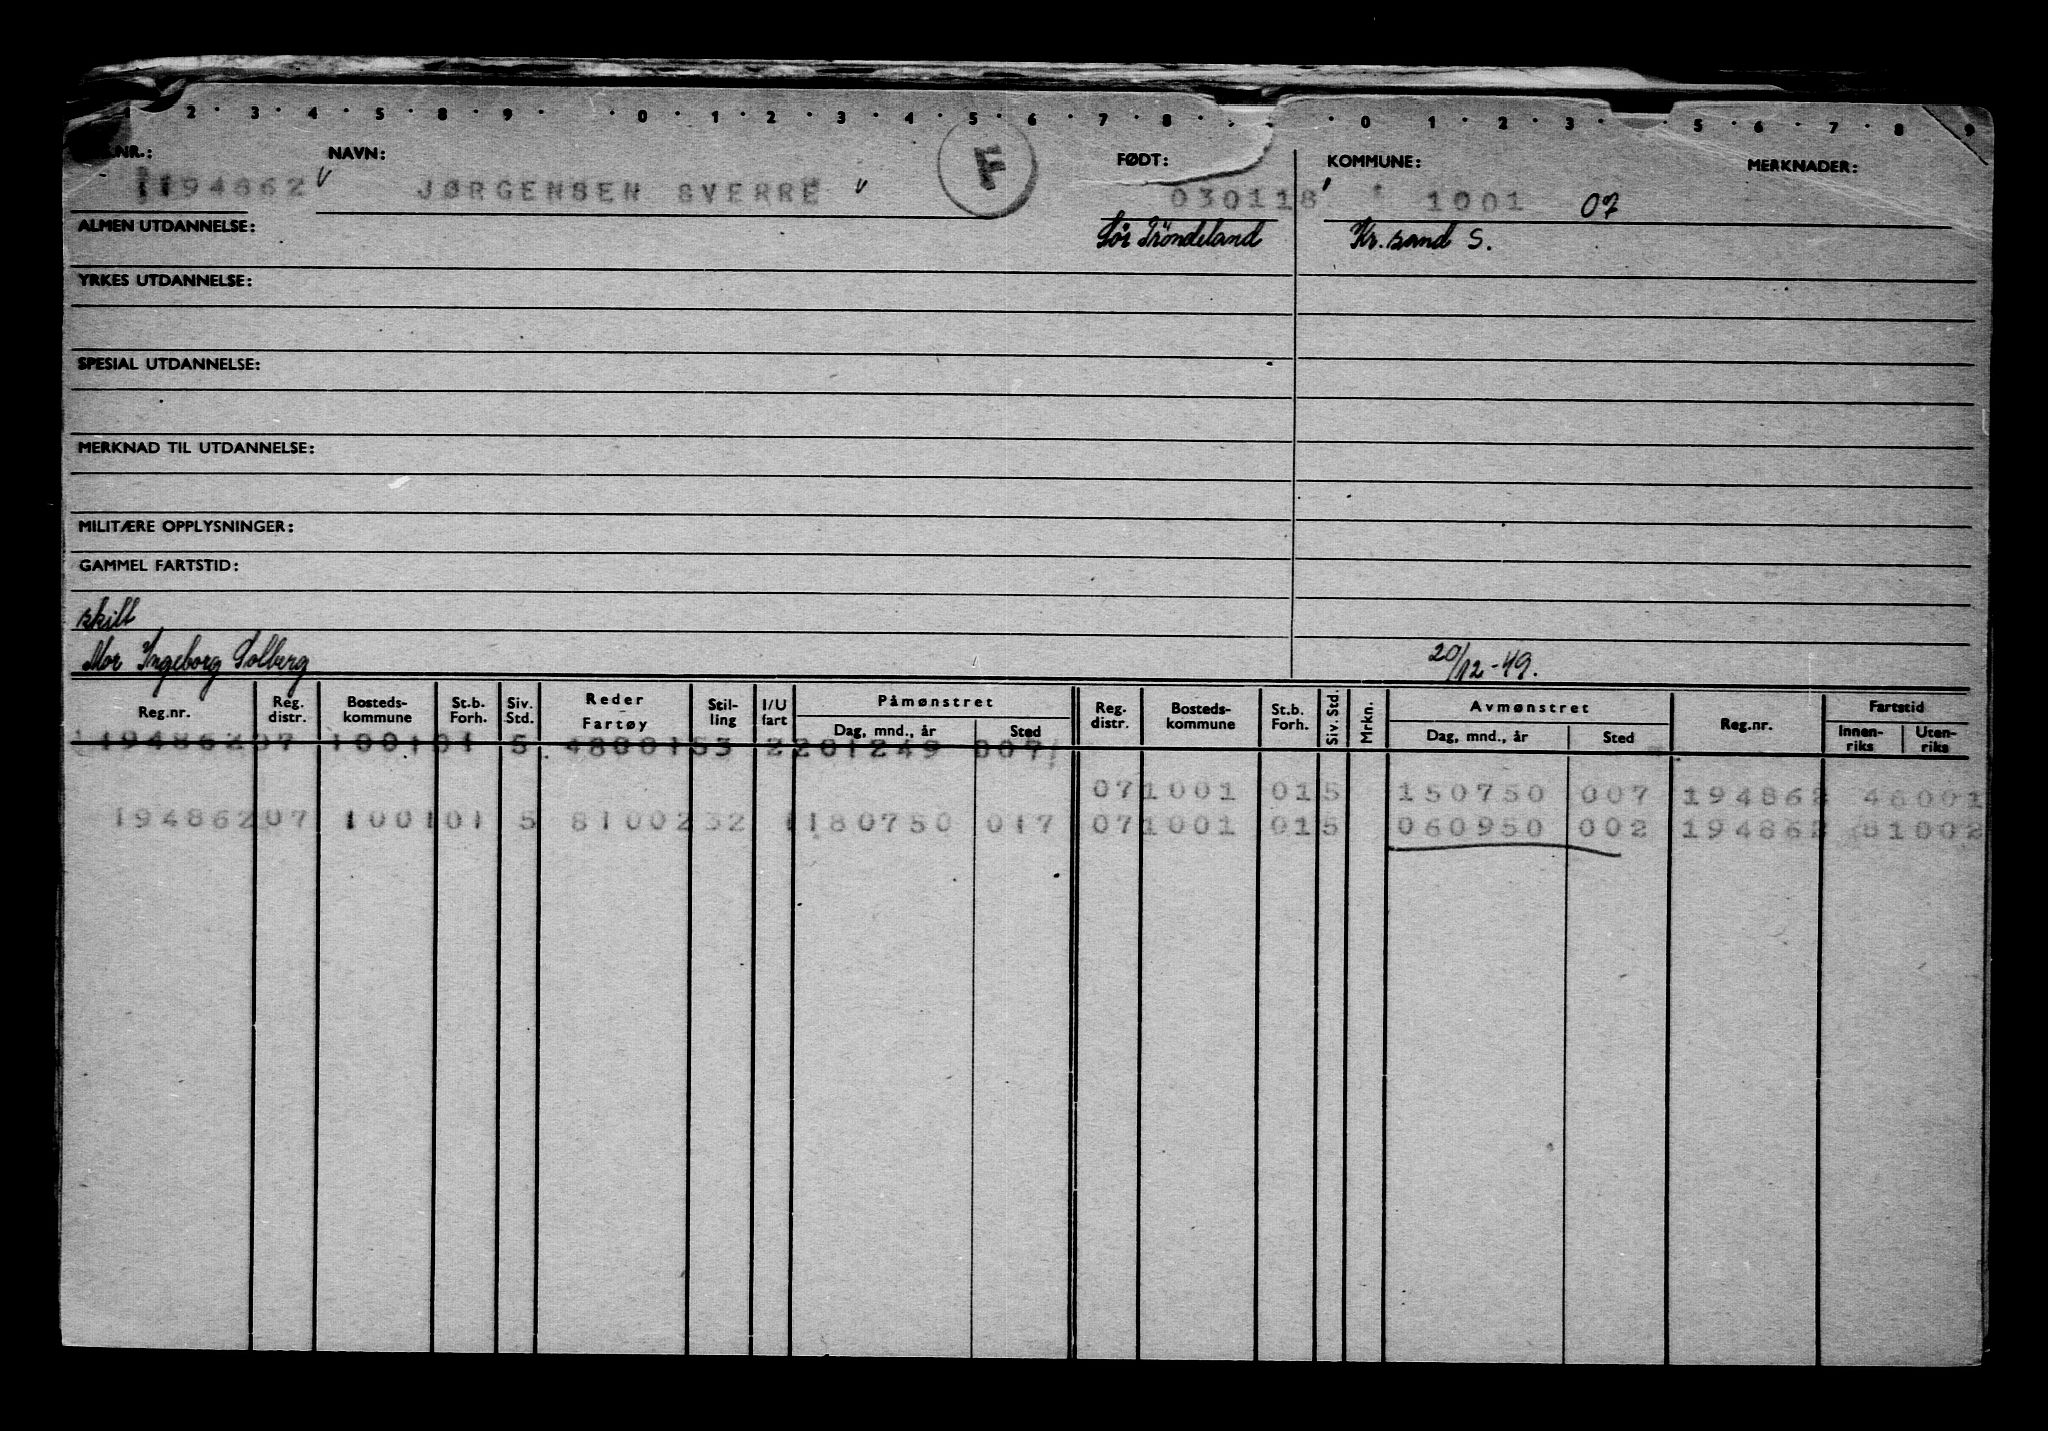 1 2 3 4 5 8 9 0 1 2 3 4 5 6 7 8 0 1 2 3 5 6 7 8 9
NR.: NAVN: FØDT: KOMMUNE: MERKNADER:
194862 JØRGENSEN SVERRE 030118 1001 07
ALMEN UTDANNELSE: Sör Tröndeland Kr. sand S.
YRKES UTDANNELSE:
SPESIAL UTDANNELSE:
MERKNAD TIL UTDANNELSE:
MILITÆRE OPPLYSNINGER:
GAMMEL FARTSTID:
skilt
Mor Ingeborg Solberg 20/12-49.
Reg.nr. Reg. distr. Bosteds-kommune St.b. Forh. Siv. Std. Reder Fartøy Stil-ling I/U fart Påmønstret Dag, mnd., år Sted Reg. distr. Bosteds-kommune St.b. Forh. Siv. Std. Mrkn. Avmønstret Dag, mnd., år Sted Reg.nr. Fartstid Innen-riks Uten-riks
194862 07 1001 01 5 53 2 201249 007
07 1001 01 5 150750 007 194862 48001
194862 07 1001 01 5 81002 32 1 180750 017 07 1001 01 5 060950 002 194862 81002